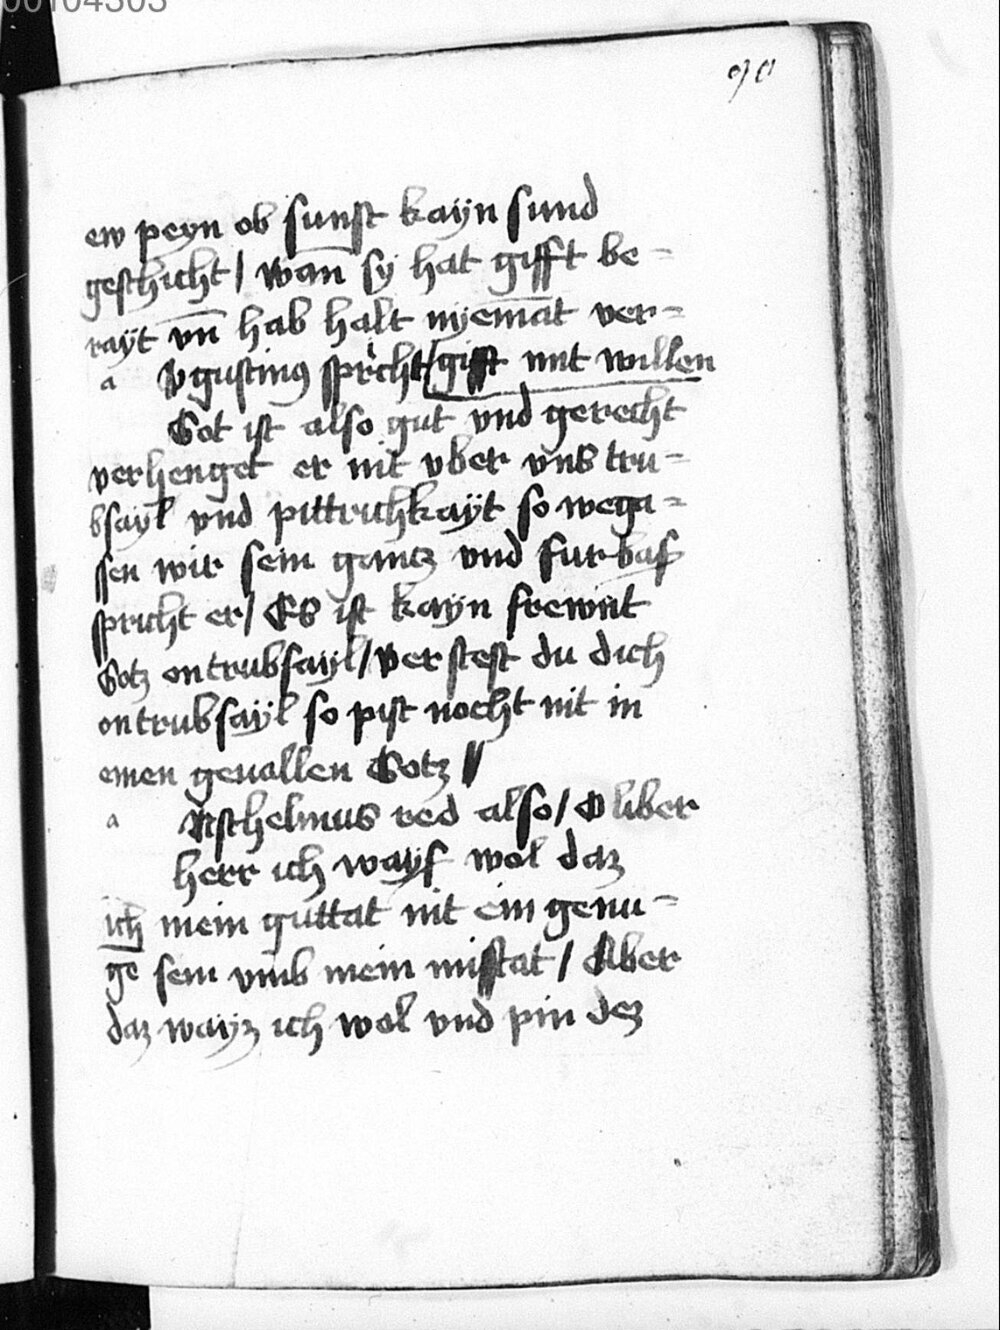 00104303
90
ew peyn ob sunst kayn sund
geschicht / wan̄ sy hat gifft be-
rayt vn̄ hab halt nyeman̄t ver-
a Vgustinus spricht / gifft mit willen
Got ist also gut vnd gerecht
verhenget er nit vber vns tru-
bsayl vnd pittrichkayt so wega-
ssen wir sein gantz vnd furbaß
spricht er / Es ist kayn frewnt
Gotz on trubsayl / verstest du dich
on trubsayl so pist nocht nit in
einen geuallen Gotz //
a Nshelmus red also / O liber
herr ich wayß wol daz
ich mein guttat nit ein genu-
ge sein vmb mein misstat / Aber
daz wayz ich wol vnd pin dez